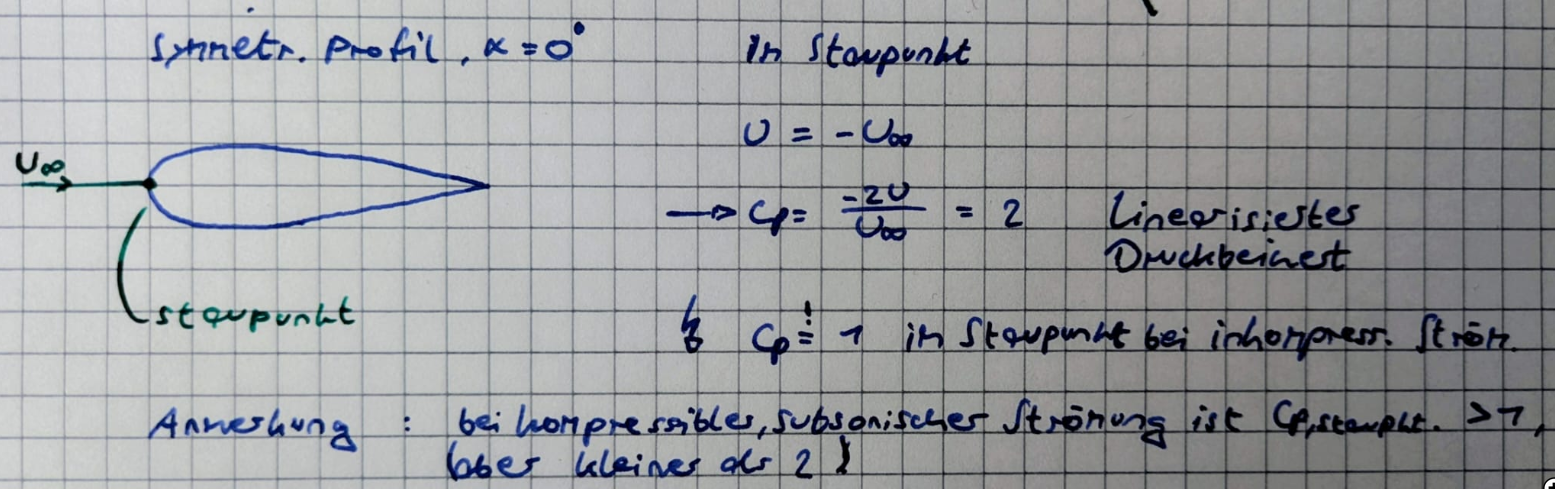 Symmetr. Profil, α = 0°
Im Staupunkt
U∞
U = -U∞
→ Cp = -2U / U∞ = 2 Linearisiertes
Druckbeiwert
Staupunkt
↯ Cp ≟ 1 im Staupunkt bei inkompress. Ström.
Anmerkung : bei kompressibler, subsonischer Strömung ist Cp,staupkt. > 1,
(aber kleiner als 2)